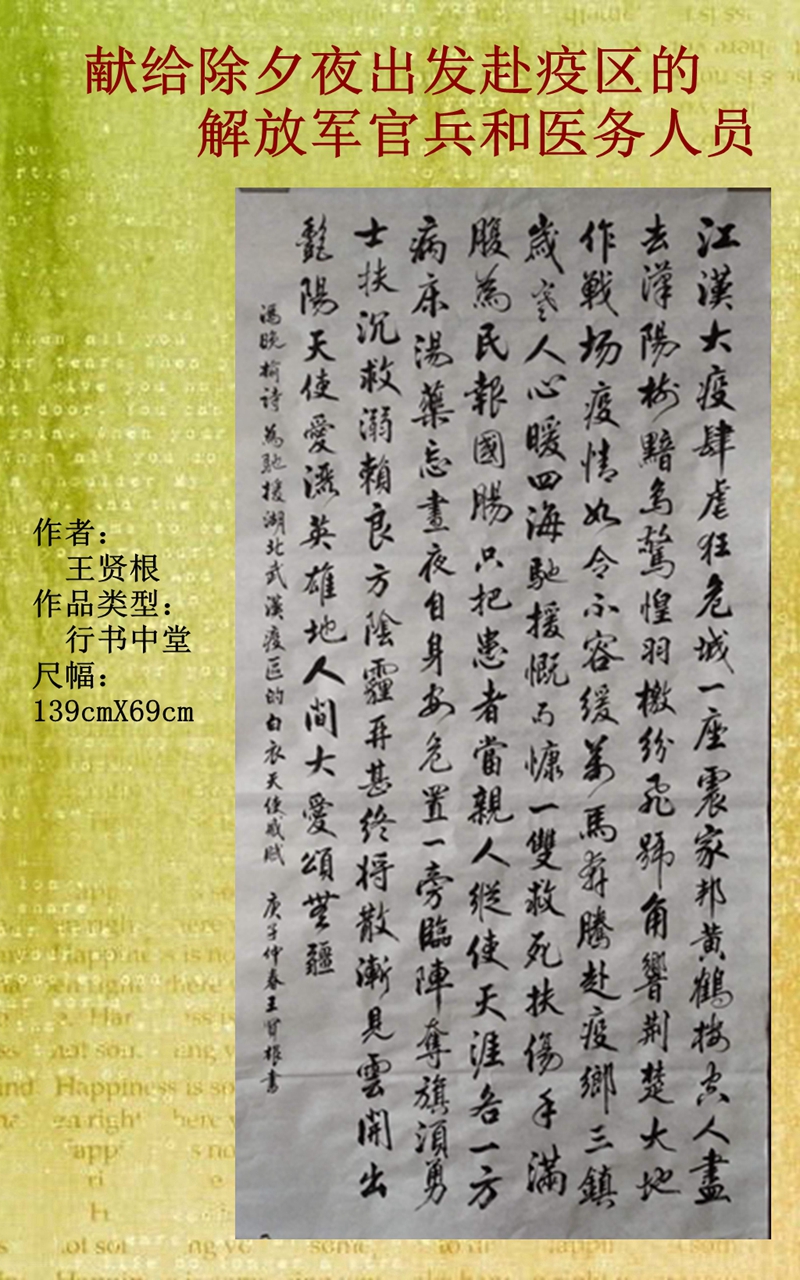 献给除夕夜出发赴疫区的
解放军官兵和医务人员
作者：
王贤根
作品类型：
行书中堂
尺幅：
139cmX69cm
江漢大疫肆虐狂危城一座震家邦黄鶴楼空人盡
去漢陽樹黯鳥驚惶羽檄紛飛號角響荆楚大地
作戰场疫情如令不容缓萬馬奔騰赴疫鄉三鎮
歲寒人心暖四海馳援慨而慷一雙救死扶傷手滿
腹為民報國腸只把患者當親人縱使天涯各一方
病床湯藥忘晝夜自身安危置一旁臨陣奪旗須勇
士扶沉救溺賴良方陰霾再甚终将散漸見雲開出
艷陽天使愛灑英雄地人间大愛頌無疆
馮晚榆詩為馳援湖北武漢疫区的白衣天使感賦 庚子仲春王賢根書